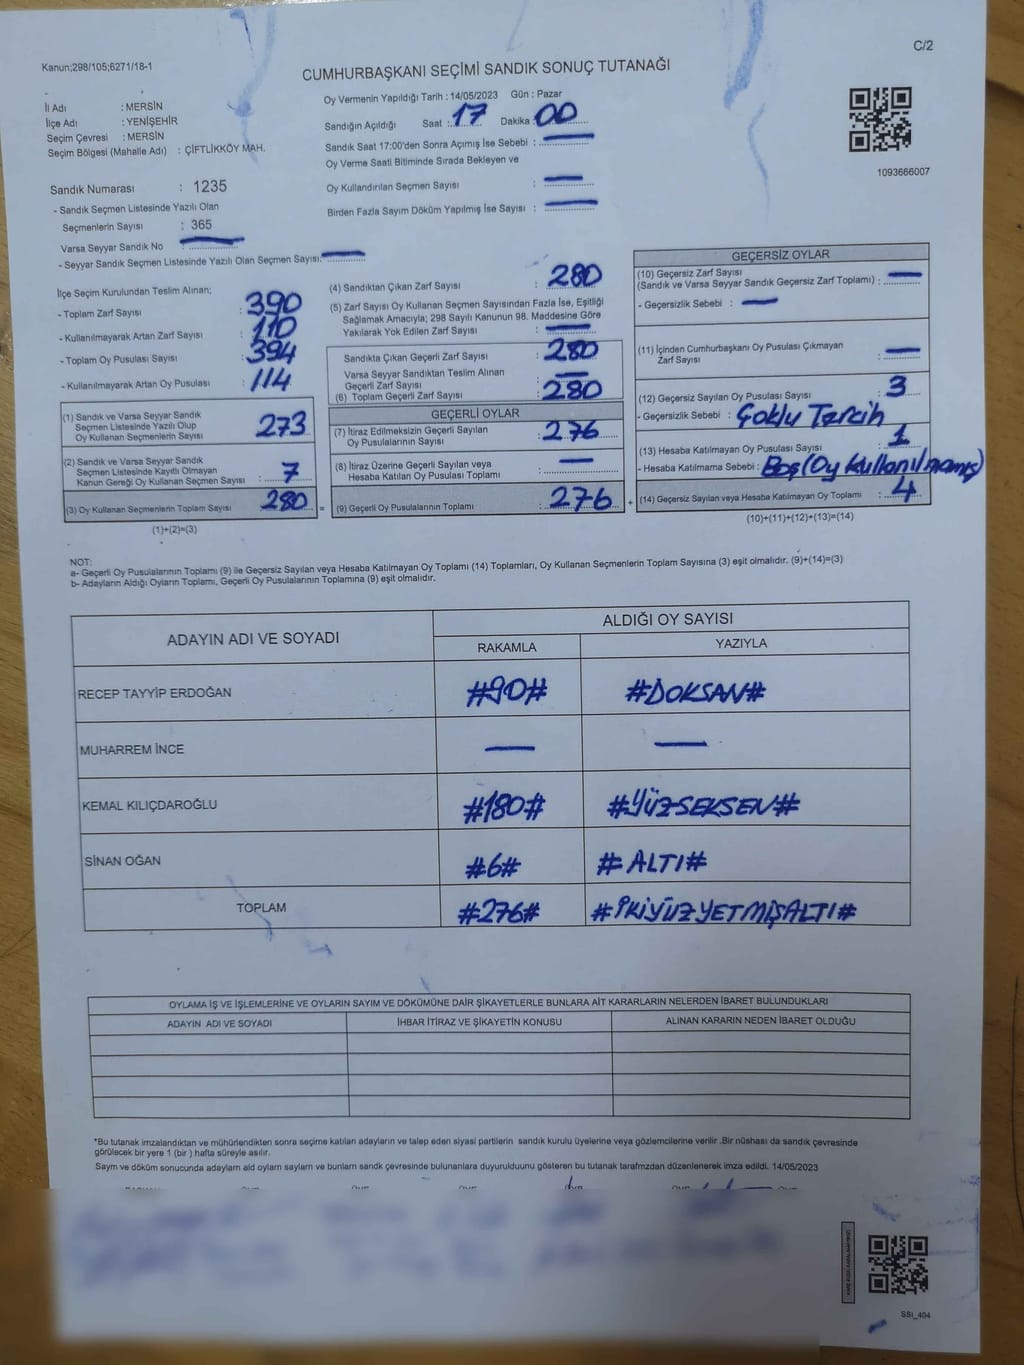 C/2
Kanun;298/105;6271/18-1
CUMHURBAŞKANI SEÇİMİ SANDIK SONUÇ TUTANAĞI
İl Adı : MERSİN
İlçe Adı : YENİŞEHİR
Seçim Çevresi : MERSİN
Seçim Bölgesi (Mahalle Adı) : ÇİFTLİKKÖY MAH.
Oy Vermenin Yapıldığı Tarih : 14/05/2023 Gün : Pazar
Sandığın Açıldığı Saat : 17 Dakika : 00
Sandık Saat 17:00'den Sonra Açımış İse Sebebi : —
Oy Verme Saati Bitiminde Sırada Bekleyen ve
Oy Kullandırılan Seçmen Sayısı : —
Birden Fazla Sayım Döküm Yapılmış İse Sayısı : —
1093666007
Sandık Numarası : 1235
- Sandık Seçmen Listesinde Yazılı Olan
Seçmenlerin Sayısı : 365
Varsa Seyyar Sandık No : —
- Seyyar Sandık Seçmen Listesinde Yazılı Olan Seçmen Sayısı: —
İlçe Seçim Kurulundan Teslim Alınan;
- Toplam Zarf Sayısı : 390
- Kullanılmayarak Artan Zarf Sayısı : 110
- Toplam Oy Pusulası Sayısı : 394
- Kullanılmayarak Artan Oy Pusulası : 114
(1) Sandık ve Varsa Seyyar Sandık
Seçmen Listesinde Yazılı Olup
Oy Kullanan Seçmenlerin Sayısı : 273
(2) Sandık ve Varsa Seyyar Sandık
Seçmen Listesinde Kayıtlı Olmayan
Kanun Gereği Oy Kullanan Seçmen Sayısı : 7
(3) Oy Kullanan Seçmenlerin Toplam Sayısı : 280 =
(1)+(2)=(3)
(4) Sandıktan Çıkan Zarf Sayısı : 280
(5) Zarf Sayısı Oy Kullanan Seçmen Sayısından Fazla İse, Eşitliği
Sağlamak Amacıyla; 298 Sayılı Kanunun 98. Maddesine Göre
Yakılarak Yok Edilen Zarf Sayısı : —
Sandıkta Çıkan Geçerli Zarf Sayısı : 280
Varsa Seyyar Sandıktan Teslim Alınan
Geçerli Zarf Sayısı : —
(6) Toplam Geçerli Zarf Sayısı : 280
GEÇERLİ OYLAR
(7) İtiraz Edilmeksizin Geçerli Sayılan
Oy Pusulalarının Sayısı : 276
(8) İtiraz Üzerine Geçerli Sayılan veya
Hesaba Katılan Oy Pusulası Toplamı : —
(9) Geçerli Oy Pusulalarının Toplamı : 276 +
GEÇERSİZ OYLAR
(10) Geçersiz Zarf Sayısı
(Sandık ve Varsa Seyyar Sandık Geçersiz Zarf Toplamı) : —
- Geçersizlik Sebebi : —
(11) İçinden Cumhurbaşkanı Oy Pusulası Çıkmayan
Zarf Sayısı : —
(12) Geçersiz Sayılan Oy Pusulası Sayısı : 3
- Geçersizlik Sebebi : Çoklu Tercih
(13) Hesaba Katılmayan Oy Pusulası Sayısı : 1
- Hesaba Katılmama Sebebi : Boş (Oy Kullanılmamış)
(14) Geçersiz Sayılan veya Hesaba Katılmayan Oy Toplamı : 4
(10)+(11)+(12)+(13)=(14)
NOT:
a- Geçerli Oy Pusulalarının Toplamı (9) ile Geçersiz Sayılan veya Hesaba Katılmayan Oy Toplamı (14) Toplamları, Oy Kullanan Seçmenlerin Toplam Sayısına (3) eşit olmalıdır. (9)+(14)=(3)
b- Adayların Aldığı Oyların Toplamı, Geçerli Oy Pusulalarının Toplamına (9) eşit olmalıdır.
ADAYIN ADI VE SOYADI ALDIĞI OY SAYISI
RAKAMLA YAZIYLA
RECEP TAYYİP ERDOĞAN #90# #DOKSAN#
MUHARREM İNCE — —
KEMAL KILIÇDAROĞLU #180# #YÜZSEKSEN#
SİNAN OĞAN #6# #ALTI#
TOPLAM #276# #İKİYÜZYETMİŞALTI#
OYLAMA İŞ VE İŞLEMLERİNE VE OYLARIN SAYIM VE DÖKÜMÜNE DAİR ŞİKAYETLERLE BUNLARA AİT KARARLARIN NELERDEN İBARET BULUNDUKLARI
ADAYIN ADI VE SOYADI İHBAR İTİRAZ VE ŞİKAYETİN KONUSU ALINAN KARARIN NEDEN İBARET OLDUĞU
*Bu tutanak imzalandıktan ve mühürlendikten sonra seçime katılan adayların ve talep eden siyasi partilerin sandık kurulu üyelerine veya gözlemcilerine verilir .Bir nüshası da sandık çevresinde
görülecek bir yere 1 (bir ) hafta süreyle asılır.
Sayım ve döküm sonucunda adayların ald oyların sayların ve bunların sandk çevresinde bulunanlara duyurulduunu gösteren bu tutanak tarafmzdan düzenlenerek imza edildi. 14/05/2023
SSi_404